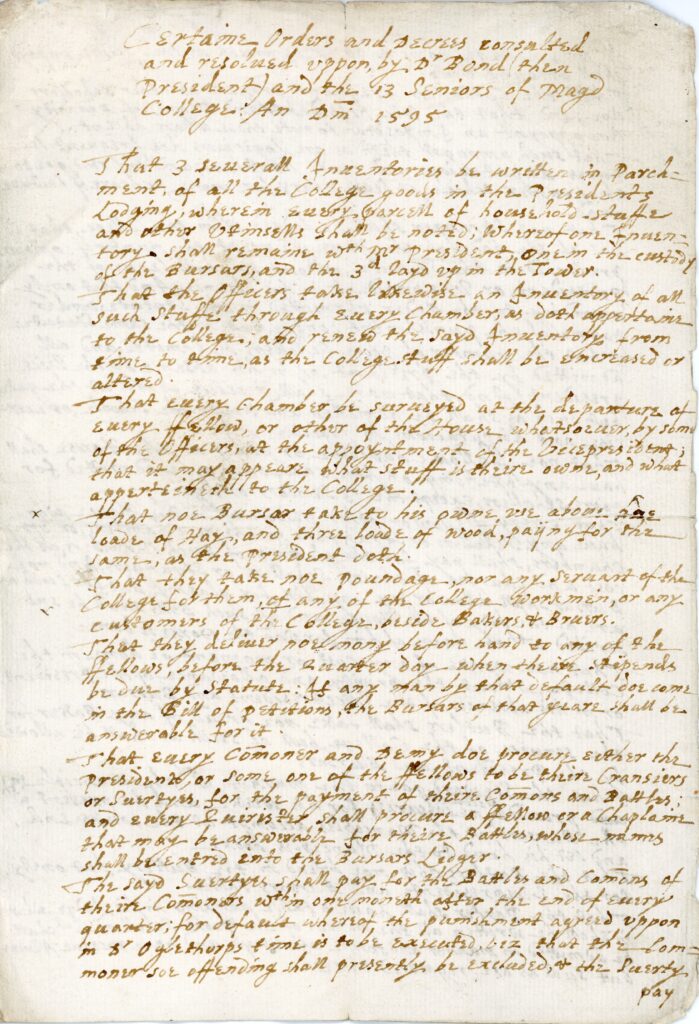 Certaine Orders and Decrees consulted
and resolved uppon, by Dr Bond (then
President) and the 13 Seniors of Magd
College: An Dm̄ 1595
That 3 severall Inventories be written in Parch-
ment, of all the College goods in the Presidents
Lodging, wherein every parcell of household stuffe
and other Utinsells shall be noted; Whereof one Inven-
tory shall remaine wth Mr President, one in the custidy
of the Bursars, and the 3d layd up in the Tower.
That the Officers take likewise an Inventory of all
such stuffe through every Chamber, as doth appertaine
to the College; and renew the sayd Inventory from
time to time, as the College stuff shall be encreased or
altered.
That every Chamber be surveyed at the departure of
every ffellow, or other of the House whatsoever, by some
of the Officers, at the appoyntment of the Vicepresident;
that it may appeare what stuff is theire owne, and what
apperteineth to the College.
x That noe Bursar take to his owne use above
loade of Hay, and three loade of wood, payng for the
same, as the President doth.
That they take noe poundage, nor any Servant of the
College for them, of any of the College workmen, or any
customers of the College, beside Bakers, & Bruers.
That they deliver noe mony before hand to any of the
ffellows, before the Quarter day when theire stipends
be due by Statute: If any man by that default doe come
in the Bill of petitions, the Bursars of that yeare shall be
answerable for it.
That every Com̄oner and Demy doe procure either the
President, or some one of the ffellows to be theire Cransiers
or Suertyes, for the payment of theire Com̄ons and Battles;
and every Quirister shall procure a ffellow or a Chaplaine
that may be answerable for theire Battles, whose names
shall be entred into the Bursars Lidger.
The sayd Suertyes shall pay for the Battles and Com̄ons of
theire Com̄oners wthin one moneth after the end of every
quarter; for default whereof the punishment agreed uppon
in Dr Oglethorps time is to be executed, viz that the Com-
moner soe offending shall presently be excluded, & the Suerty
pay